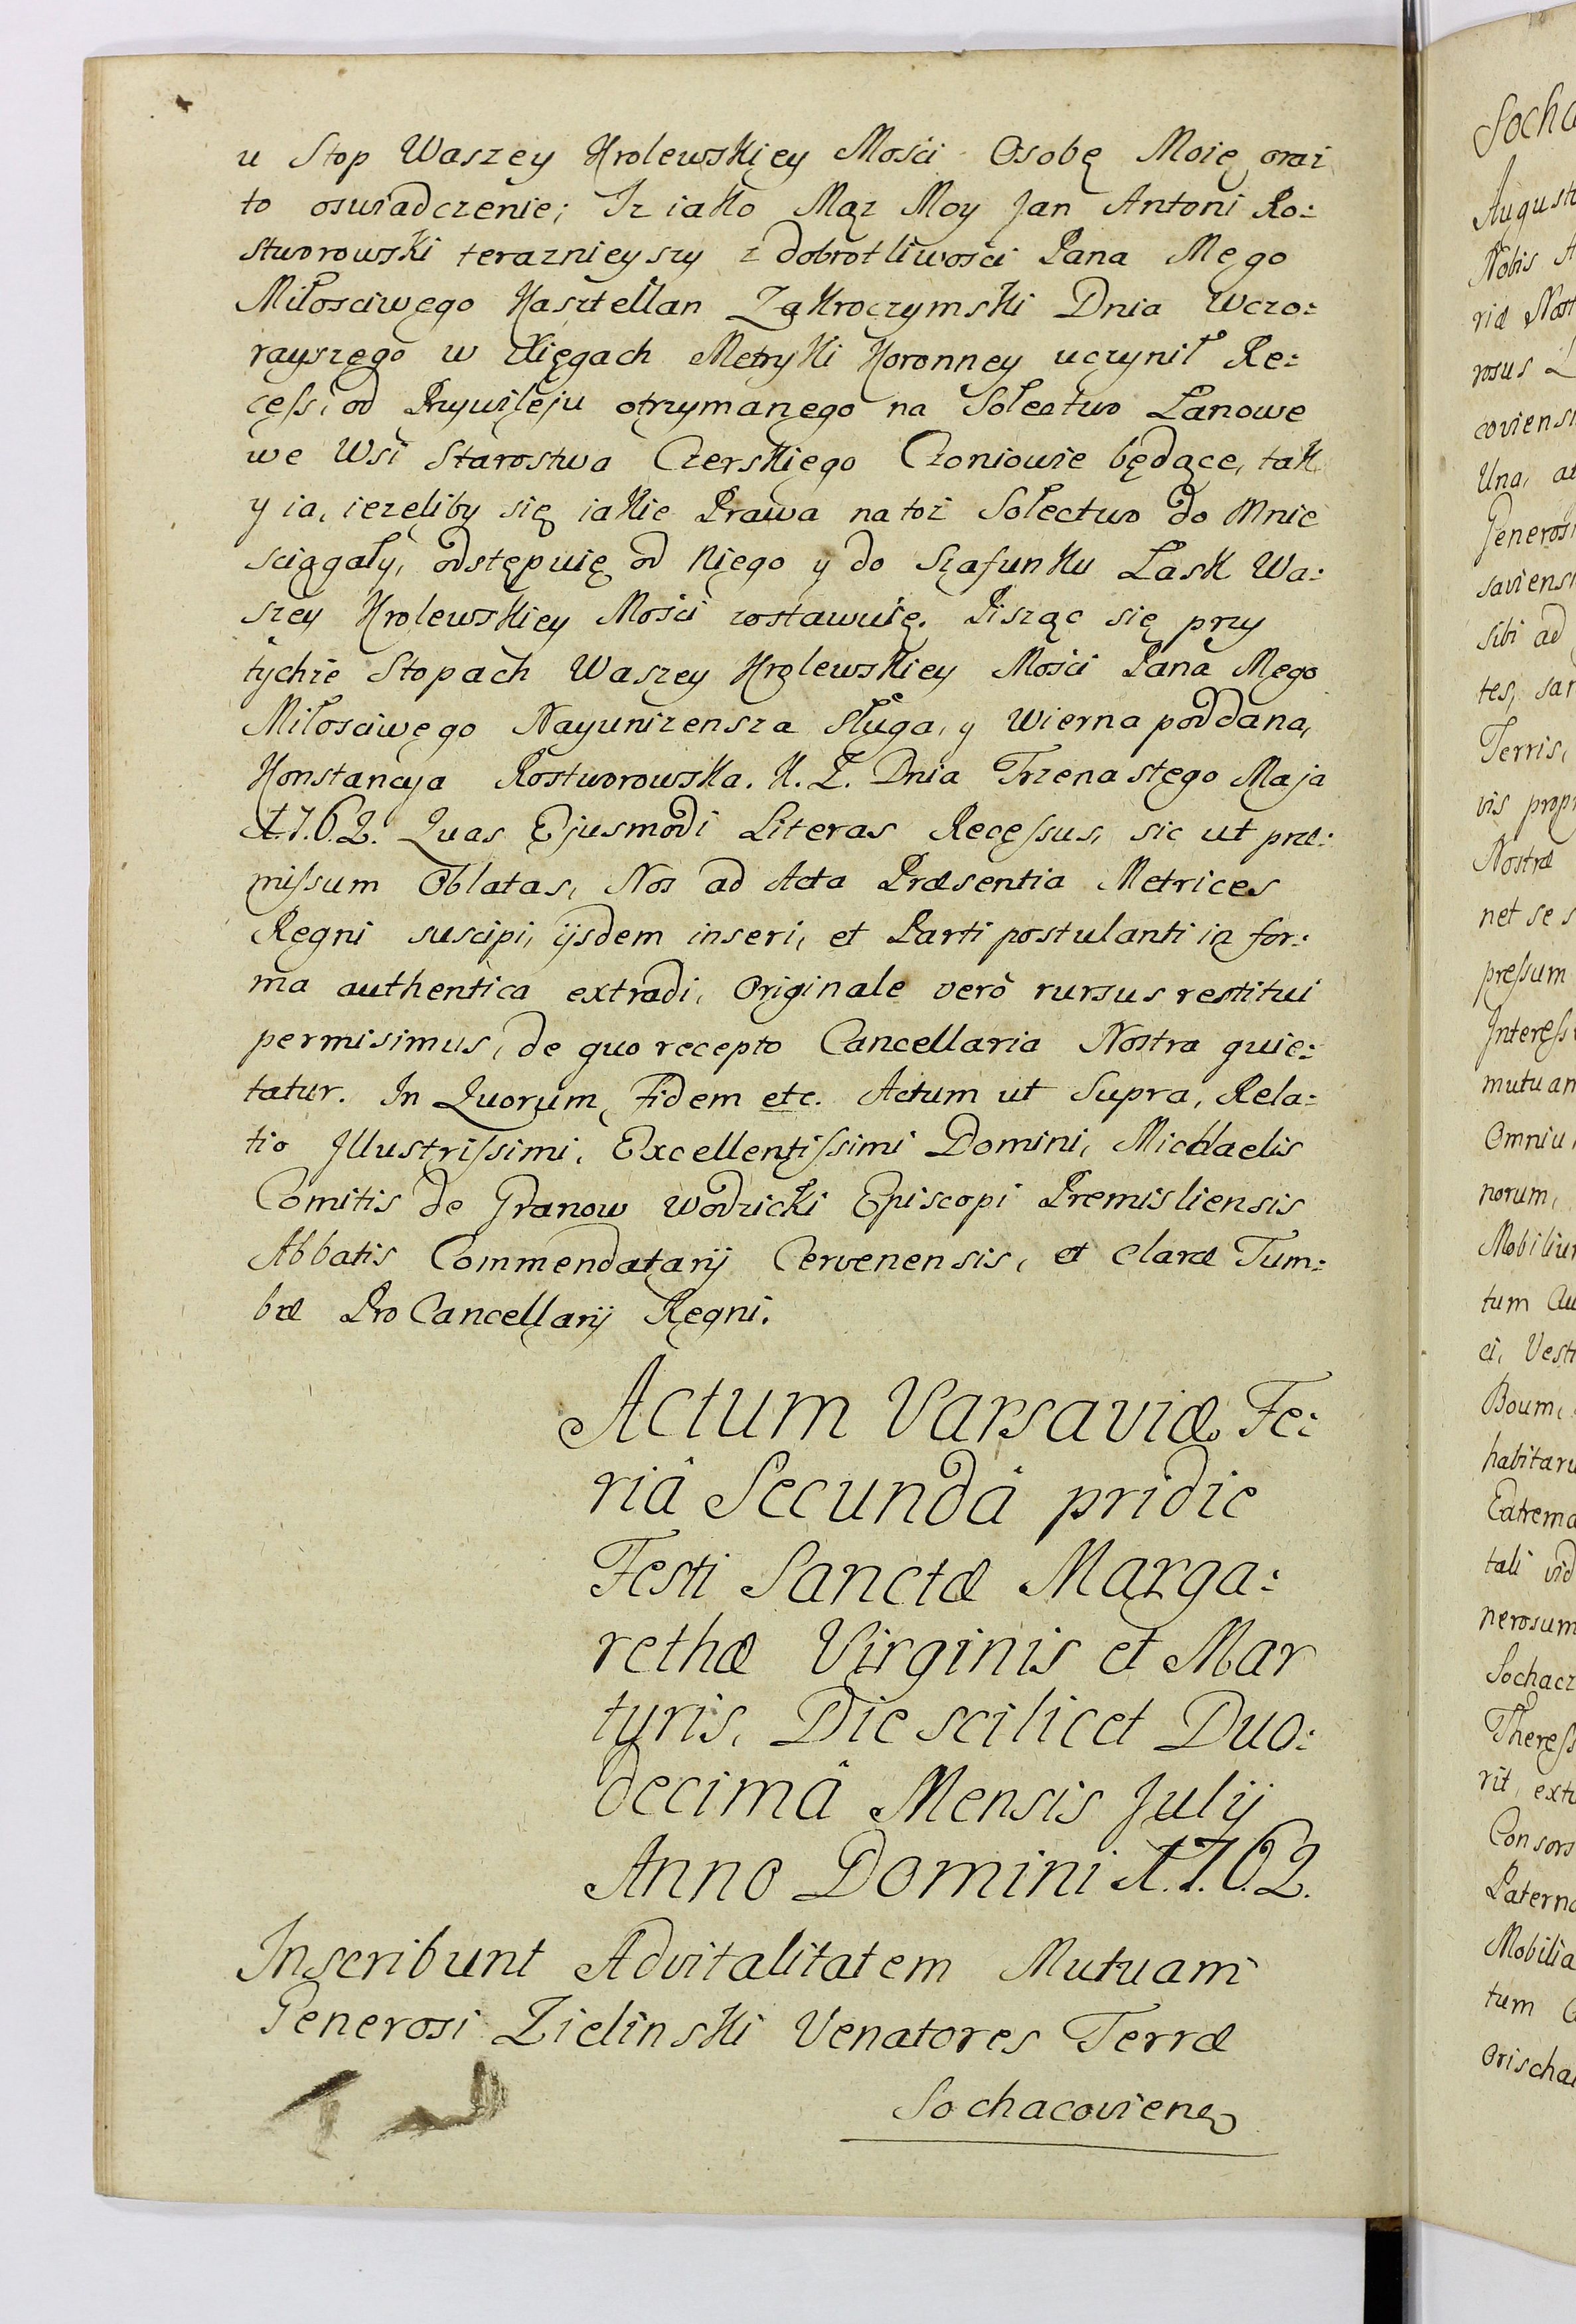 u Stop Waszey Krolewskiey Mości Osobę Moię oraz
to oswiadczenie; Iz iako Mąz Moy Jan Antoni Ro:
stworowski teraznieyszy z dobrotliwości Pana Mego
Miłosciwego Kasztellan Zakroczymski Dnia Wczo:
rayszego w Xięgach Metryki Koronney uczynił Re:
cess, od Przywileju otrzymanego na Sołectwo Łanowe
we Wsi Starostwa Czerskiego Czoniowie będące, tak
y ia, iezeliby się iakie Prawa na toż Sołectwo do Mnie
sciągały, odstępuię od Niego y do Szafunku Łask Wa:
szey Krolewskiey Mości zostawuię. Pisząc się przy
tychże Stopach Waszey Krolewskiey Mości Pana Mego
Miłosciwego Nayunizensza Sługa, y wierna poddana,
Konstancya Rostworowska. K. Z. Dnia Trzenastego Maja
1.7.6.2. Quas Ejusmodi Literas Recessus, sic ut præ:
missum Oblatas, Nos ad Acta Præsentia Metrices
Regni suscipi, ijsdem inseri, et Parti postulanti in for:
ma authentica extradi, Originale verò rursus restitui
permisimus, de quo recepto Cancellaria Nostra quie:
tatur. In Quorum Fidem etc. Actum ut Supra, Rela:
tio Jllustrissimi, Excellentissimi Domini, Michaelis
Comitis de Granow Wodzicki Episcopi Premisliensis
Abbatis Commendatarij Cervenensis, et Claræ Tum:
bæ Pro Cancellarij Regni.
Actum Varsaviæ Fe:
riâ Secundâ pridie
Festi Sanctæ Marga:
rethæ Virginis et Mar
tyris, Die scilicet Duo:
decimâ Mensis Julij
Anno Domini 1.7.6.2.
Inscribunt Advitalitatem Mutuam
Generosi Zielinski Venatores Terræ
Sochacovien
Socha
Augustu
Nobis
riæ Nost
rosus
coviensi
Una, at
Generosi
saviensi
Sibi ad
tes, san
Terris,
vis propr
Nostræ
net se s
pressum
Interess
mutuam
Omniu
norum,
Mobiliu
tum Au
ci, Vesti
Boum,
habitaru
Extrema
tali vid
nerosum
Sochacz
Theress
rit, extu
Consors
Paterna
Mobilia
tum
Orischal